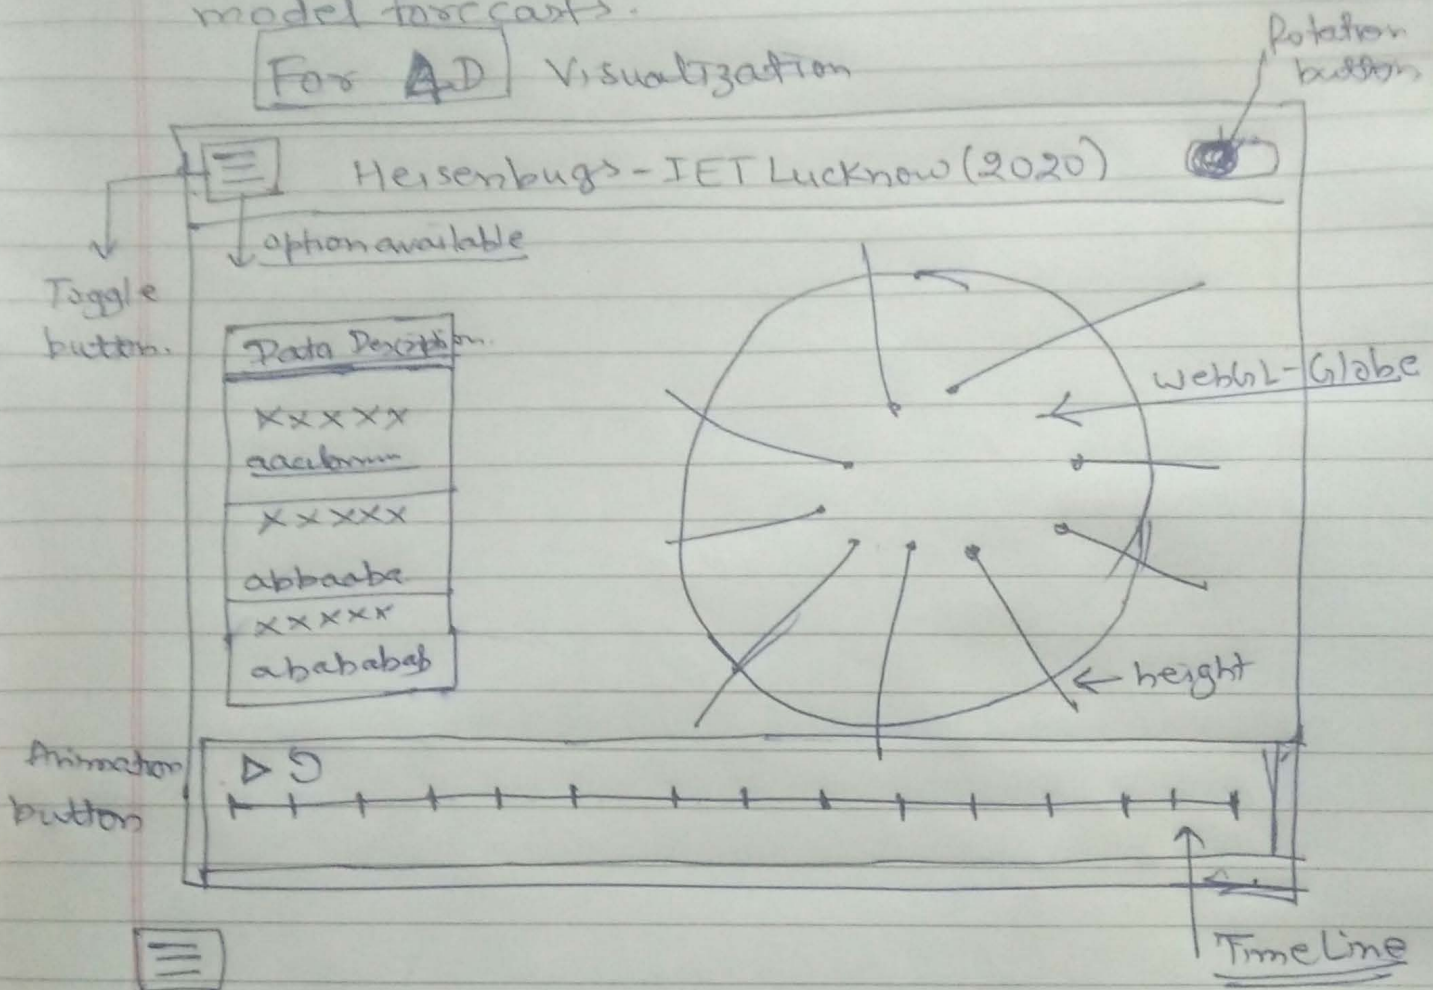 model forecasts.
For 4D Visualization
Rotation
button
Heisenbugs - IET Lucknow (2020)
option available
Toggle
button.
Data Description.
xxxxx
xxxxx
abbaaba
xxxxx
abababab
WebGL-Globe
height
Animation
button
TimeLine